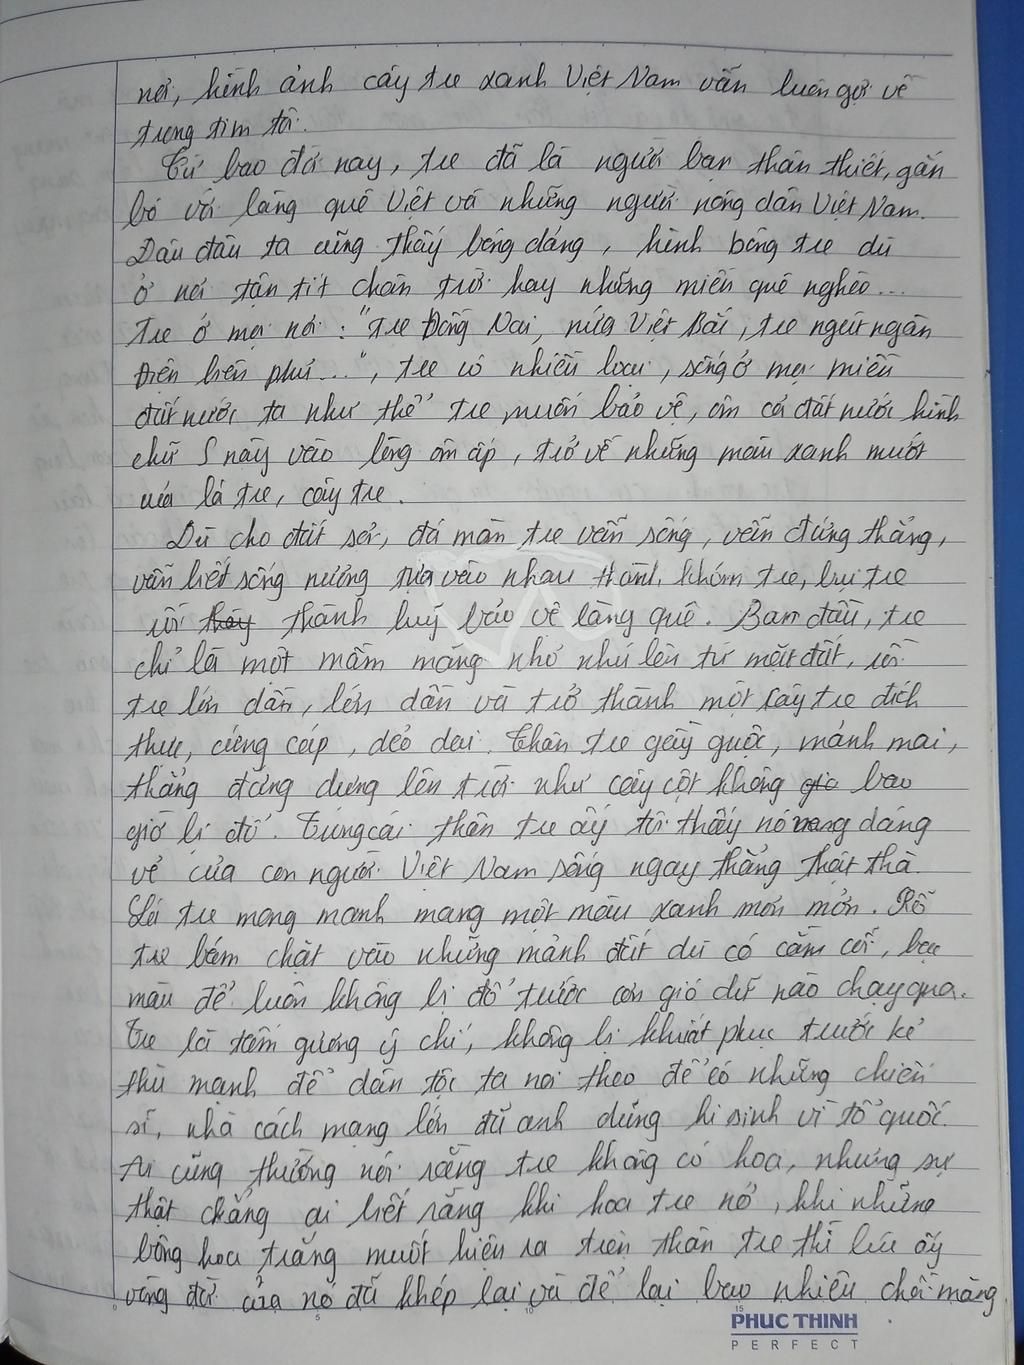 nơi, hình ảnh cây tre xanh Việt Nam vẫn luôn gợi về
trong tim tôi.
Từ bao đời nay, tre đã là người bạn thân thiết, gắn
bó với làng quê Việt và những người nông dân Việt Nam.
Dâu đâu ta cũng thấy bóng dáng, hình bóng tre dù
ở nơi tận tít chân trời hay những miền quê nghèo...
Tre ở mọi nơi: "Tre Đồng Nai, nứa Việt Bắc, tre ngút ngàn
Điện biên phủ...", tre có nhiều loại, sống ở mọi miền
đất nước ta như thể tre muốn bảo vệ, ôm cả đất nước hình
chữ S này vào lòng ôm ấp, trở về những màu xanh mướt
của lá tre, cây tre.
Dù cho đất sỏi, đá mòn tre vẫn sống, vẫn đứng thẳng,
vẫn biết sống nương tựa vào nhau thành khóm tre, bụi tre
rồi thành luỹ bảo vệ làng quê. Ban đầu, tre
chỉ là một mầm măng nhỏ nhú lên từ mặt đất, rồi
tre lớn dần, lớn dần và trở thành một cây tre đích
thực, cứng cáp, dẻo dai. Thân tre gầy guộc, mảnh mai,
thẳng đứng dựng lên trời như cây cột không bao
giờ bị đổ. Từng cái thân tre ấy tôi thấy nó mang dáng
vẻ của con người Việt Nam sống ngay thẳng thật thà.
Lá tre mong manh mang một màu xanh mơn mởn. Rễ
tre bám chặt vào những mảnh đất dù có cằn cỗi, bạc
màu để luôn không bị đổ trước cơn gió dữ nào chạy qua.
Tre là tấm gương ý chí, không bị khuất phục trước kẻ
thù mạnh để dân tộc ta noi theo để có những chiến
sĩ, nhà cách mạng lớn đã anh dũng hi sinh vì tổ quốc.
Ai cũng thường nói rằng tre không có hoa, nhưng sự
thật chẳng ai biết rằng khi hoa tre nở, khi những
bông hoa trắng muốt hiện ra trên thân tre thì lúc ấy
vòng đời của nó đã khép lại và để lại bao nhiêu chồi măng
PHUC THINH
PERFECT